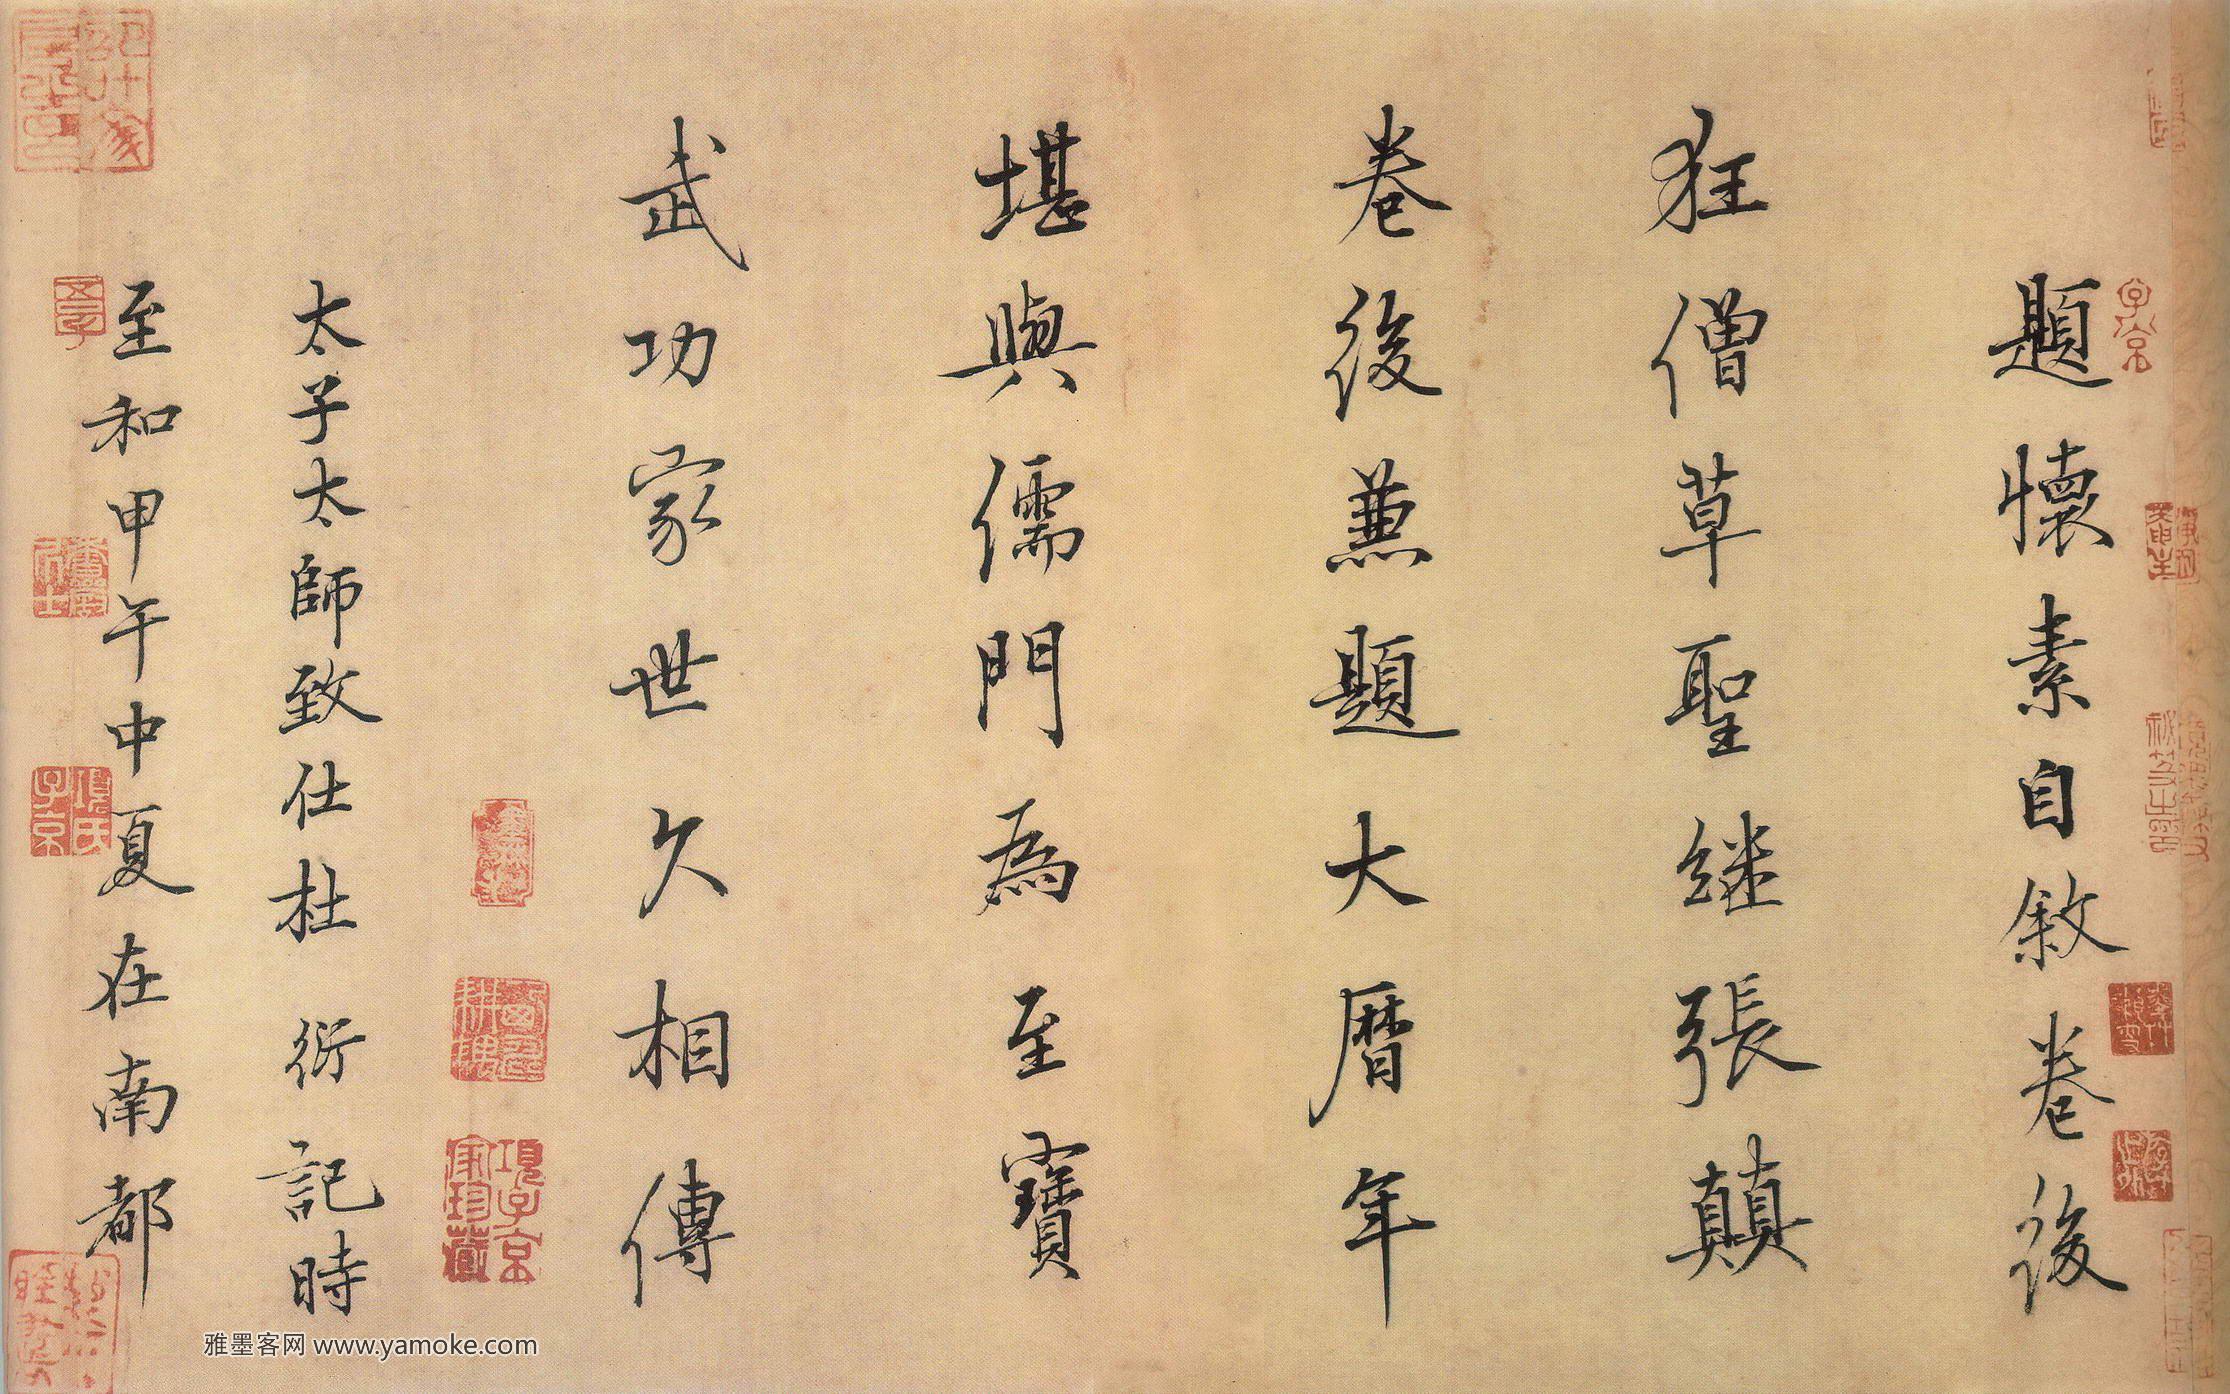 題懷素自敘卷後
狂僧草聖継張顛
卷後兼題大曆年
堪與儒門為至寶
武功家世久相傳
太子太師致仕杜衍記時
至和甲午中夏在南都
子京
項子京家珍藏
項氏子京
雅墨客网 www.yamoke.com